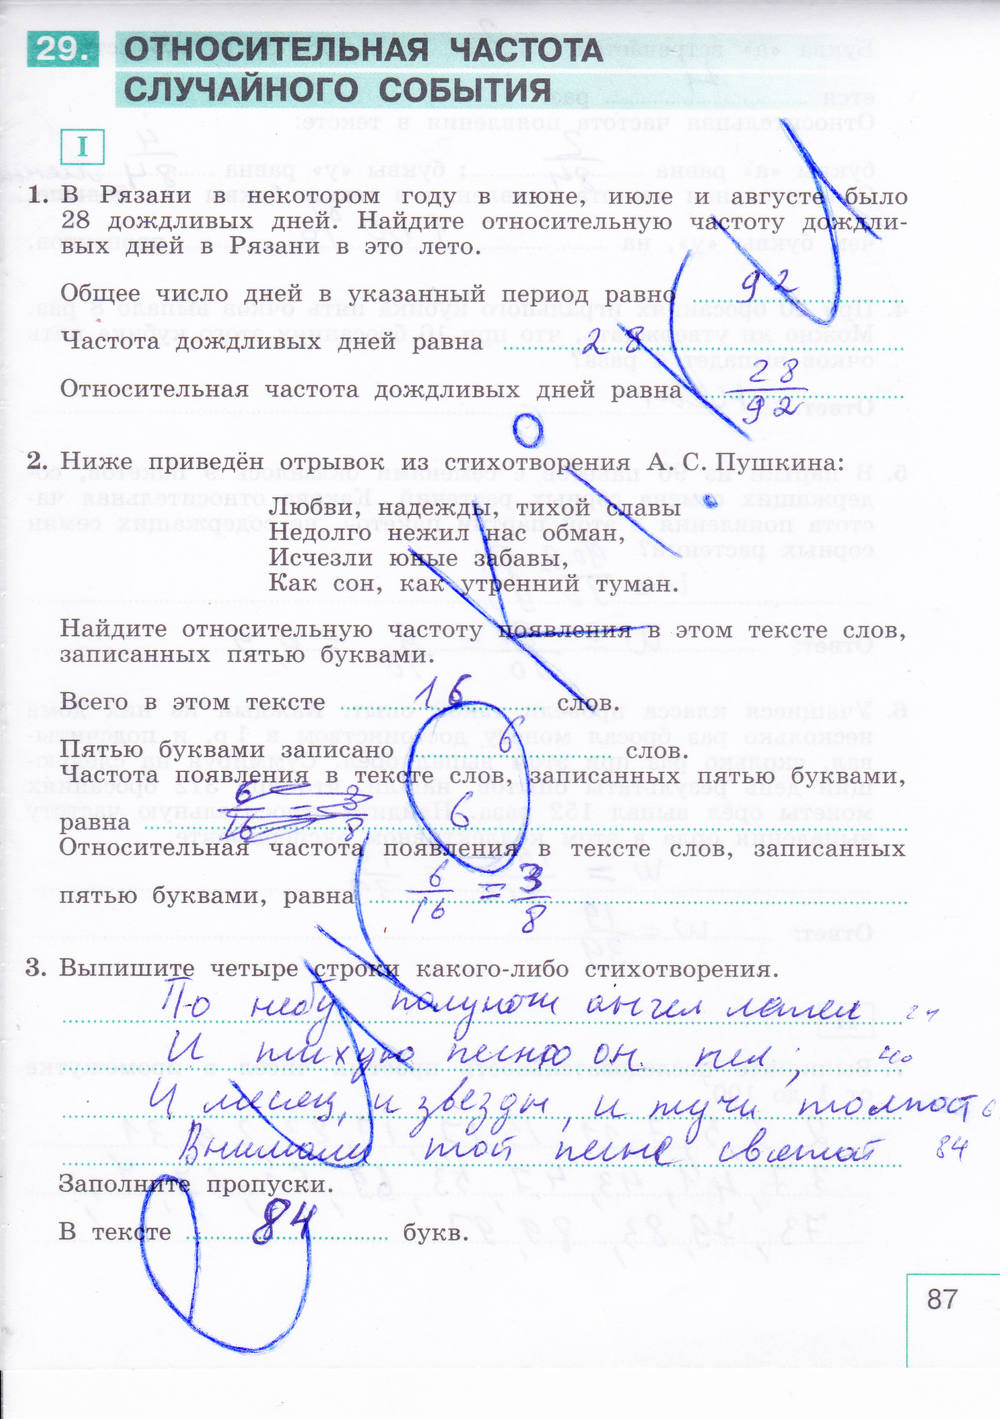 29. ОТНОСИТЕЛЬНАЯ ЧАСТОТА
СЛУЧАЙНОГО СОБЫТИЯ
I
1. В Рязани в некотором году в июне, июле и августе было
28 дождливых дней. Найдите относительную частоту дождли-
вых дней в Рязани в это лето.
Общее число дней в указанный период равно 92
Частота дождливых дней равна 28
Относительная частота дождливых дней равна 28/92
2. Ниже приведён отрывок из стихотворения А. С. Пушкина:
Любви, надежды, тихой славы
Недолго нежил нас обман,
Исчезли юные забавы,
Как сон, как утренний туман.
Найдите относительную частоту появления в этом тексте слов,
записанных пятью буквами.
Всего в этом тексте 16 слов.
Пятью буквами записано 6 слов.
Частота появления в тексте слов, записанных пятью буквами,
равна 6/16 = 3/8 6
Относительная частота появления в тексте слов, записанных
пятью буквами, равна 6/16 = 3/8
3. Выпишите четыре строки какого-либо стихотворения.
По небу полуночи ангел летел 24
И тихую песню он пел; 40
И месяц, и звезды, и тучи толпой
Внимали той песне святой 84
Заполните пропуски.
В тексте 84 букв.
87